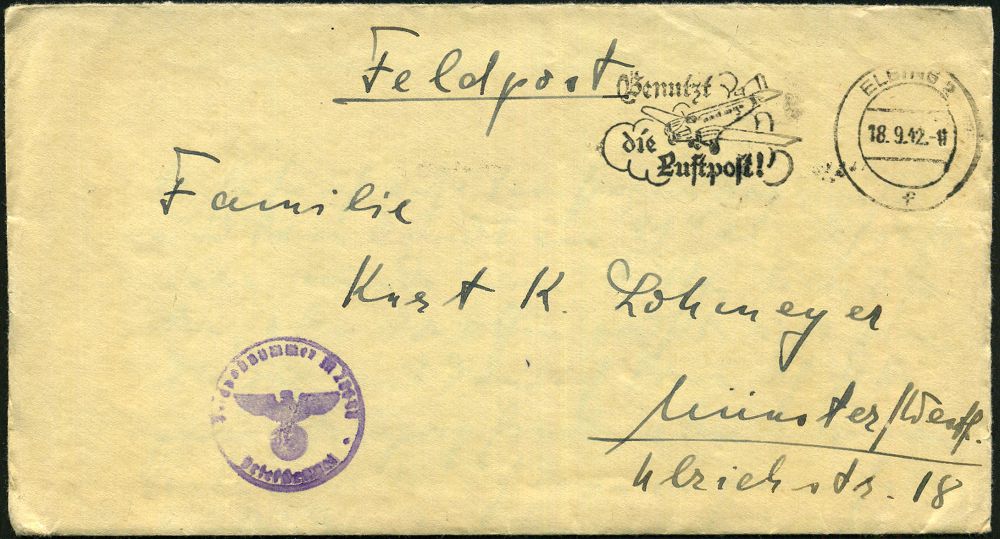 Feldpost
Benutzt
die
Luftpost!
ELBING 2
18.9.42.
f
Familie
Kurt K. Lohmeyer
Münster/Westf.
Ulrichstr. 18
Briefstempel